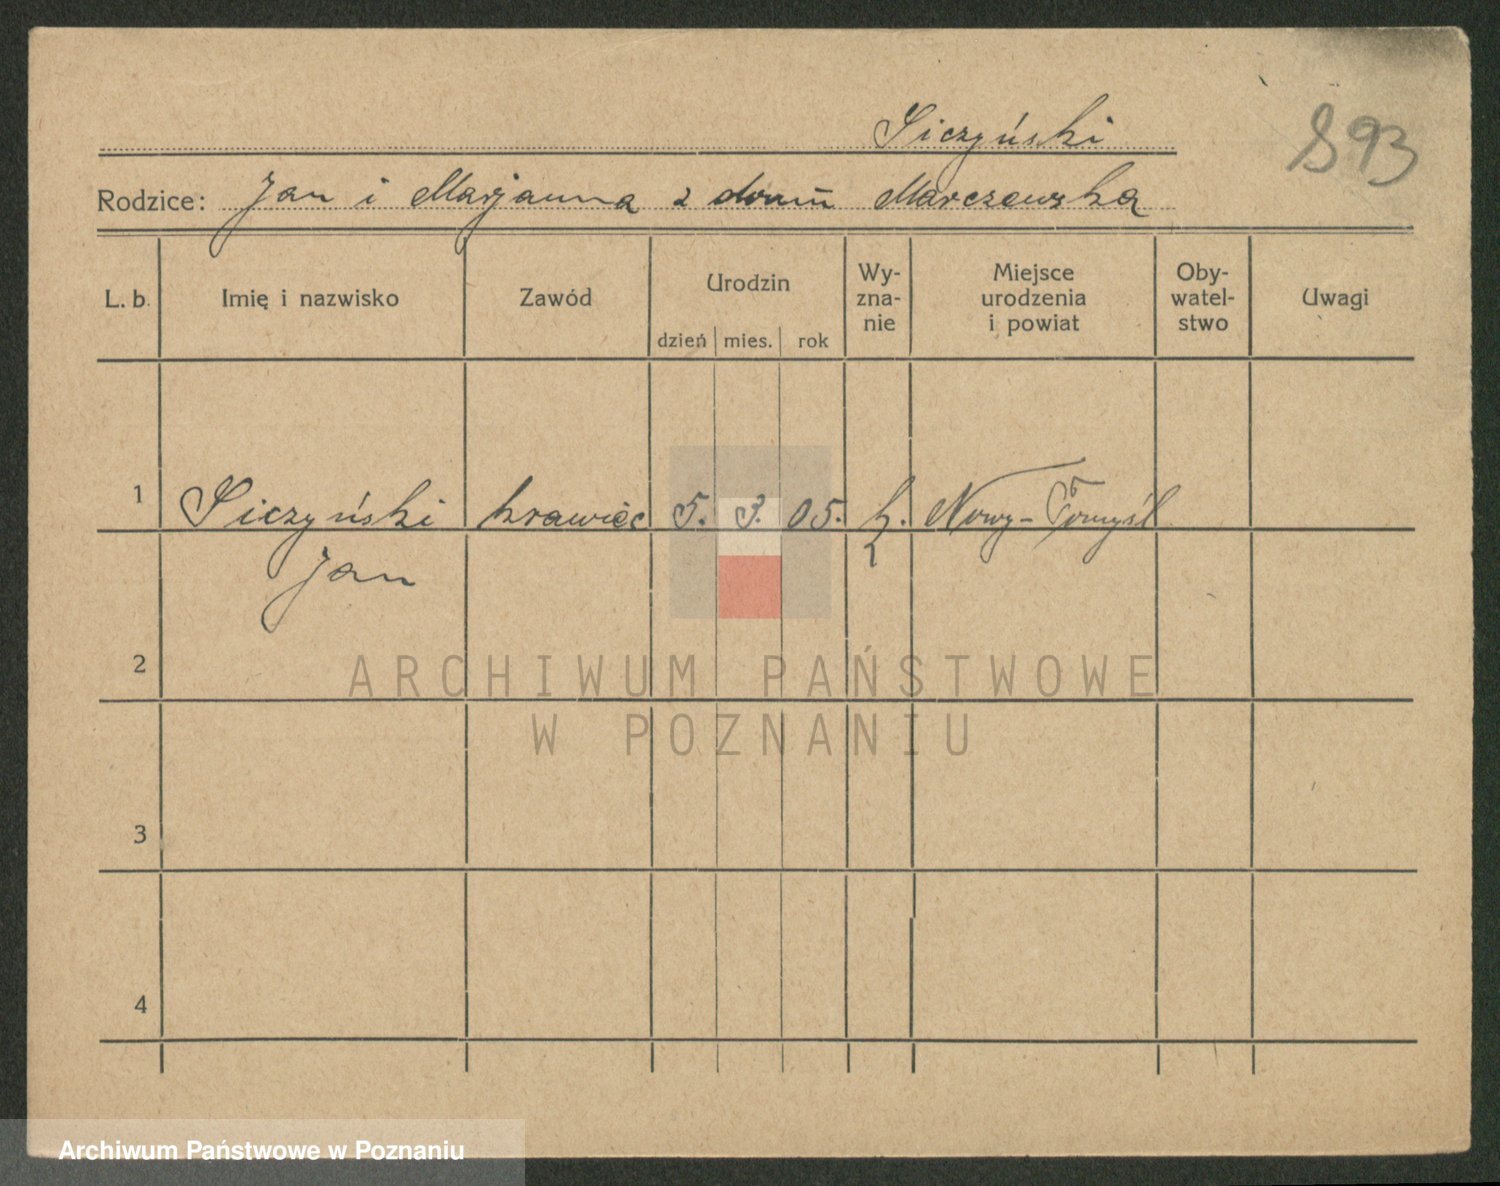 Siczyński
893
Rodzice: Jan i Marjanna z domu Marczewska
L. b. Imię i nazwisko Zawód Urodzin dzień mies. rok Wy- zna- nie Miejsce urodzenia i powiat Oby- watel- stwo Uwagi
1 Siczyński krawiec 5. 3. 05. k. Nowy-Tomyśl
Jan
2
ARCHIWUM PAŃSTWOWE
W POZNANIU
3
4
Archiwum Państwowe w Poznaniu